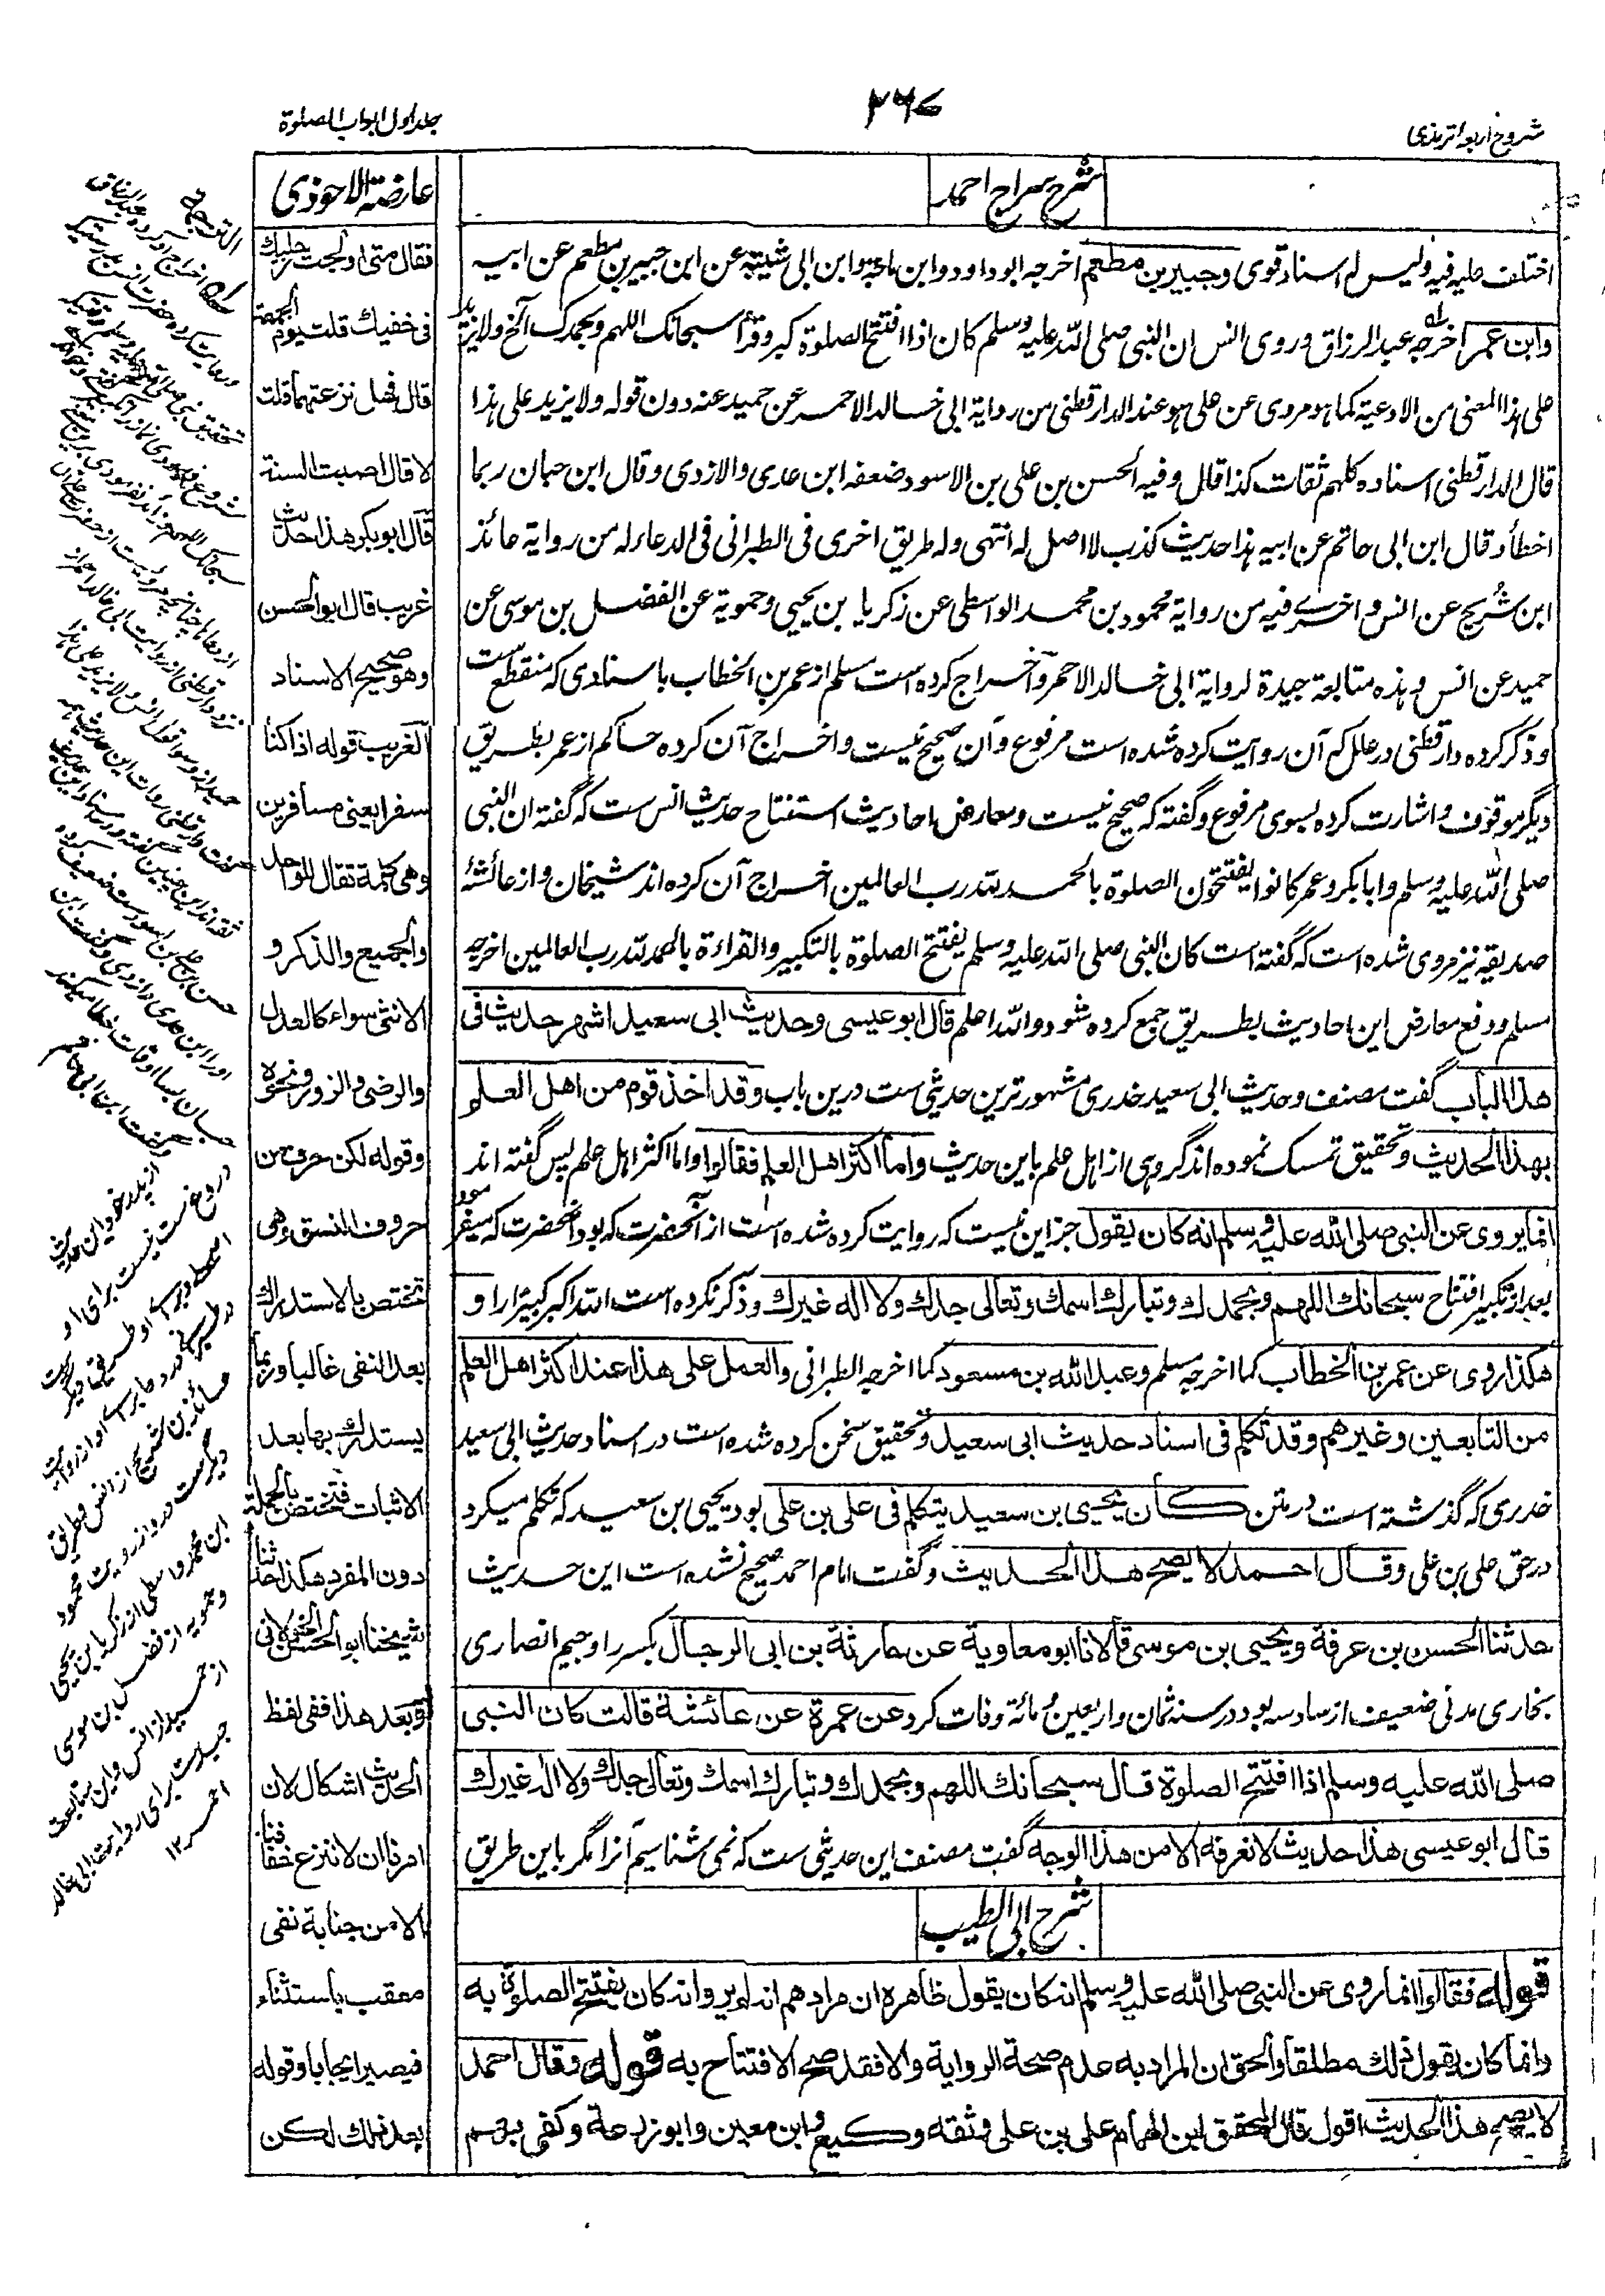 شروح اربعہ ترمذی
۲۶۷
جلد اول ابواب الصلوة
شرح سراج احمد
اختلف علیه فیه ولیس له اسناد قوی وجبیر بن مطعم اخرجه ابو داود وابن ماجة وابن ابی شیبة عن ابن جبیر بن مطعم عن ابیه
وابن عمر اخرجه عبد الرزاق وروی انس ان النبی صلی الله علیه وسلم کان اذا افتتح الصلوة کبر وقرأ سبحانک اللهم وبحمدک الخ ولا یزید
علی هذا المعنی من الادعیة کما هو مروی عن علی هو عند الدارقطنی من روایة ابی خالد الاحمر عن حمید عنه دون قوله ولا یزید علی هذا
قال الدارقطنی اسناده کلهم ثقات کذا قال وفیه الحسن بن علی بن الاسود ضعفه ابن عدی والازدی وقال ابن حبان ربما
اخطأ وقال ابن ابی حاتم عن ابیه هذا حدیث کذب لا اصل له انتهی وله طریق اخری فی الطبرانی فی الدعاء له من روایة عائذ
ابن شریح عن انس واخری فیه من روایة محمود بن محمد الواسطی عن زکریا بن یحیی وحمویة عن الفضل بن موسی عن
حمید عن انس وهذه متابعة جیدة لروایة ابی خالد الاحمر وآخراج کرده است مسلم از عمر بن الخطاب باسنادی که منقطع ست
وذکر کرده دارقطنی در علل که آن روایت کرده شده است مرفوع وآن صحیح نیست واخراج آن کرده حاکم از عمر بطریق
دیگر موقوف واشارت کرده بسوی مرفوع وگفته که صحیح نیست ومعارض احادیث استفتاح حدیث انس ست که گفته ان النبی
صلی الله علیه وسلم وابا بکر وعمر کانوا یفتتحون الصلوة بالحمد لله رب العالمین اخراج آن کرده اند شیخان واز عائشهٔ
صدیقه نیز مروی شده است که گفته است کان النبی صلی الله علیه وسلم یفتتح الصلوة بالتکبیر والقراءة بالحمد لله رب العالمین اخرجه
مسلم ودفع معارض این احادیث بطریق جمع کرده شود والله اعلم قال ابو عیسی وحدیث ابی سعید اشهر حدیث فی
هذا الباب گفت مصنف وحدیث ابی سعید خدری مشهورترین حدیثی ست درین باب وقد اخذ قوم من اهل العلم
بهذا الحدیث وتحقیق تمسک نموده اند گروهی از اهل علم باین حدیث واما اکثر اهل العلم فقالوا واما اکثر اهل علم پس گفته اند
انما یروی عن النبی صلی الله علیه وسلم انه کان یقول جز این نیست که روایت کرده شده است از آنحضرت که بود آنحضرت که میفرمود
بعد از تکبیر افتتاح سبحانک اللهم وبحمدک وتبارک اسمک وتعالی جدک ولا اله غیرک وذکر نکرده است الله اکبر کبیرا را و
هکذا روی عن عمر بن الخطاب کما اخرجه مسلم وعبد الله بن مسعود کما اخرجه الطبرانی والعمل علی هذا عند اکثر اهل العلم
من التابعین وغیرهم وقد تکلم فی اسناد حدیث ابی سعید وتحقیق سخن کرده شده است در اسناد حدیث ابی سعید
خدری که گذشته است در متن کان یحیی بن سعید یتکلم فی علی بن علی بود یحیی بن سعید که تکلم میکرد
در حق علی بن علی وقال احمد لا یصح هذا الحدیث وگفت امام احمد صحیح نشده است این حدیث
حدثنا الحسن بن عرفة ویحیی بن موسی قالا نا ابو معاویة عن حارثة بن ابی الرجال بکسر را وجیم انصاری
بخاری مدنی ضعیف از سادسه بود در سنه ثمان واربعین ومائة وفات کرد عن عمرة عن عائشة قالت کان النبی
صلی الله علیه وسلم اذا افتتح الصلوة قال سبحانک اللهم وبحمدک وتبارک اسمک وتعالی جدک ولا اله غیرک
قال ابو عیسی هذا حدیث لا نعرفه الا من هذا الوجه گفت مصنف این حدیثی ست که نمی شناسیم آنرا مگر باین طریق
شرح ابی الطیب
قوله فقالوا انما روی عن النبی صلی الله علیه وسلم انه کان یقول ظاهره ان مرادهم انه لم یرو انه کان یفتتح الصلوة به
وانما کان یقول ذلک مطلقا والحق ان المراد به عدم صحة الروایة والا فقد صح الافتتاح به قوله وقال احمد
لا یصح هذا الحدیث اقول قال المحقق ابن الهمام علی بن علی وثقه وکیع وابن معین وابو زرعة وکفی بهم
عارضة الاحوذی
فقال متی اولجت رجلیک
فی خفیک قلت یوم الجمعة
قال فهل نزعتهما قلت
لا قال اصبت السنة
قال ابو بکر هذا حدیث
غریب قال ابو الحسن
وهو صحیح الاسناد
الغریب قوله اذا کنا
سفرا یعنی مسافرین
وهی کلمة تقال للواحد
والجمیع والذکر و
الانثی سواء کالعدل
والرضی والزور ونحوه
وقوله لکن حرف من
حروف النسق وهی
تختص بالاستدراک
بعد النفی غالبا وربما
یستدرک بها بعد
الاثبات فتختص بالجملة
دون المفرد هکذا حدثنا
شیخنا ابو الحسن
وبعد هذا ففی لفظ
الحدیث اشکال لان
امرنا ان لا ننزع خفافنا
الا من جنابة نفی
معقب باستثناء
فیصیر ایجابا وقوله
بعد ذلک لکن
الترجمة
از پدر خود این حدیث
دروغ ست نیست برای او
ابن محمد واسطی از زکریا بن یحیی
وحمویه از فضل بن موسی
از حمید از انس واین متابعت
جید ست برای روایت ابی خالد
احمر ۱۲